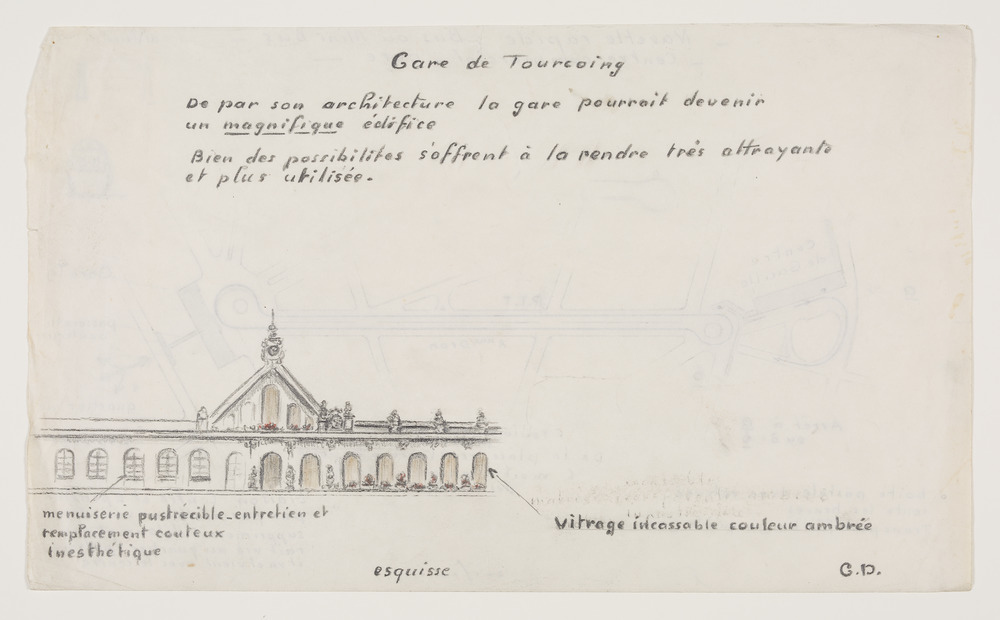 Gare de Tourcoing
De par son architecture la gare pourrait devenir
un magnifique édifice
Bien des possibilites s'offrent à la rendre très attrayante
et plus utilisée.
menuiserie putrécible_entretien et
remplacement couteux
inesthétique
Vitrage incassable couleur ambrée
esquisse
G.D.